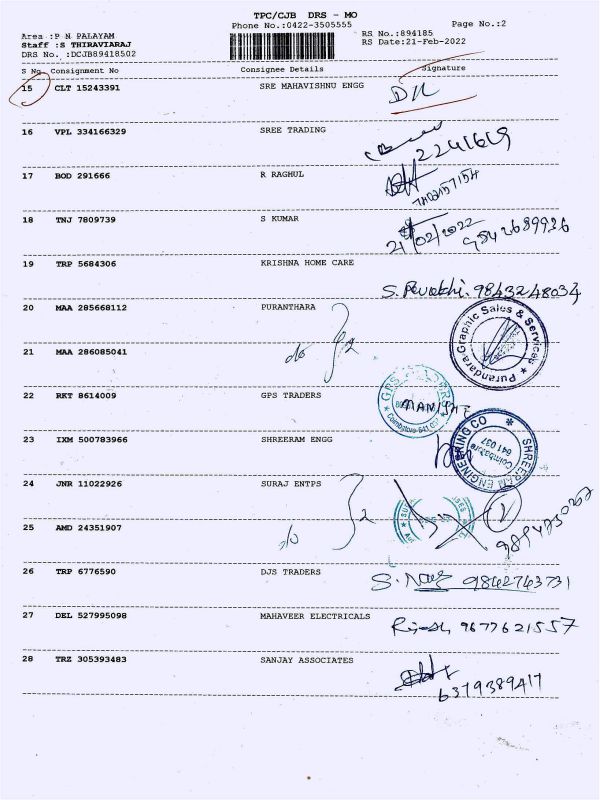 TPC/CJB DRS - MO
Phone No.:0422-3505555 Page No.:2
Area :P N PALAYAM RS No.:894185
Staff :S THIRAVIARAJ RS Date:21-Feb-2022
DRS No. :DCJB89418502
S No. Consignment No Consignee Details Signature
15 CLT 15243391 SRE MAHAVISHNU ENGG
16 VPL 334166329 SREE TRADING
2241619
17 BOD 291666 R RAGHUL
18 TNJ 7809739 S KUMAR
21/02/2022 9542689936
19 TRP 5684306 KRISHNA HOME CARE
9843248034
20 MAA 285668112 PURANTHARA
Purandara Graphic Sales & Services
21 MAA 286085041 do
22 RKT 8614009 GPS TRADERS
GPS TRADERS Coimbatore-641 037
23 IXM 500783966 SHREERAM ENGG
SHREERAM ENGINEERING CO Coimbatore 641 037
24 JNR 11022926 SURAJ ENTPS
25 AMD 24351907 do
26 TRP 6776590 DJS TRADERS
9842743731
27 DEL 527995098 MAHAVEER ELECTRICALS
9677621557
28 TRZ 305393483 SANJAY ASSOCIATES
6379389417